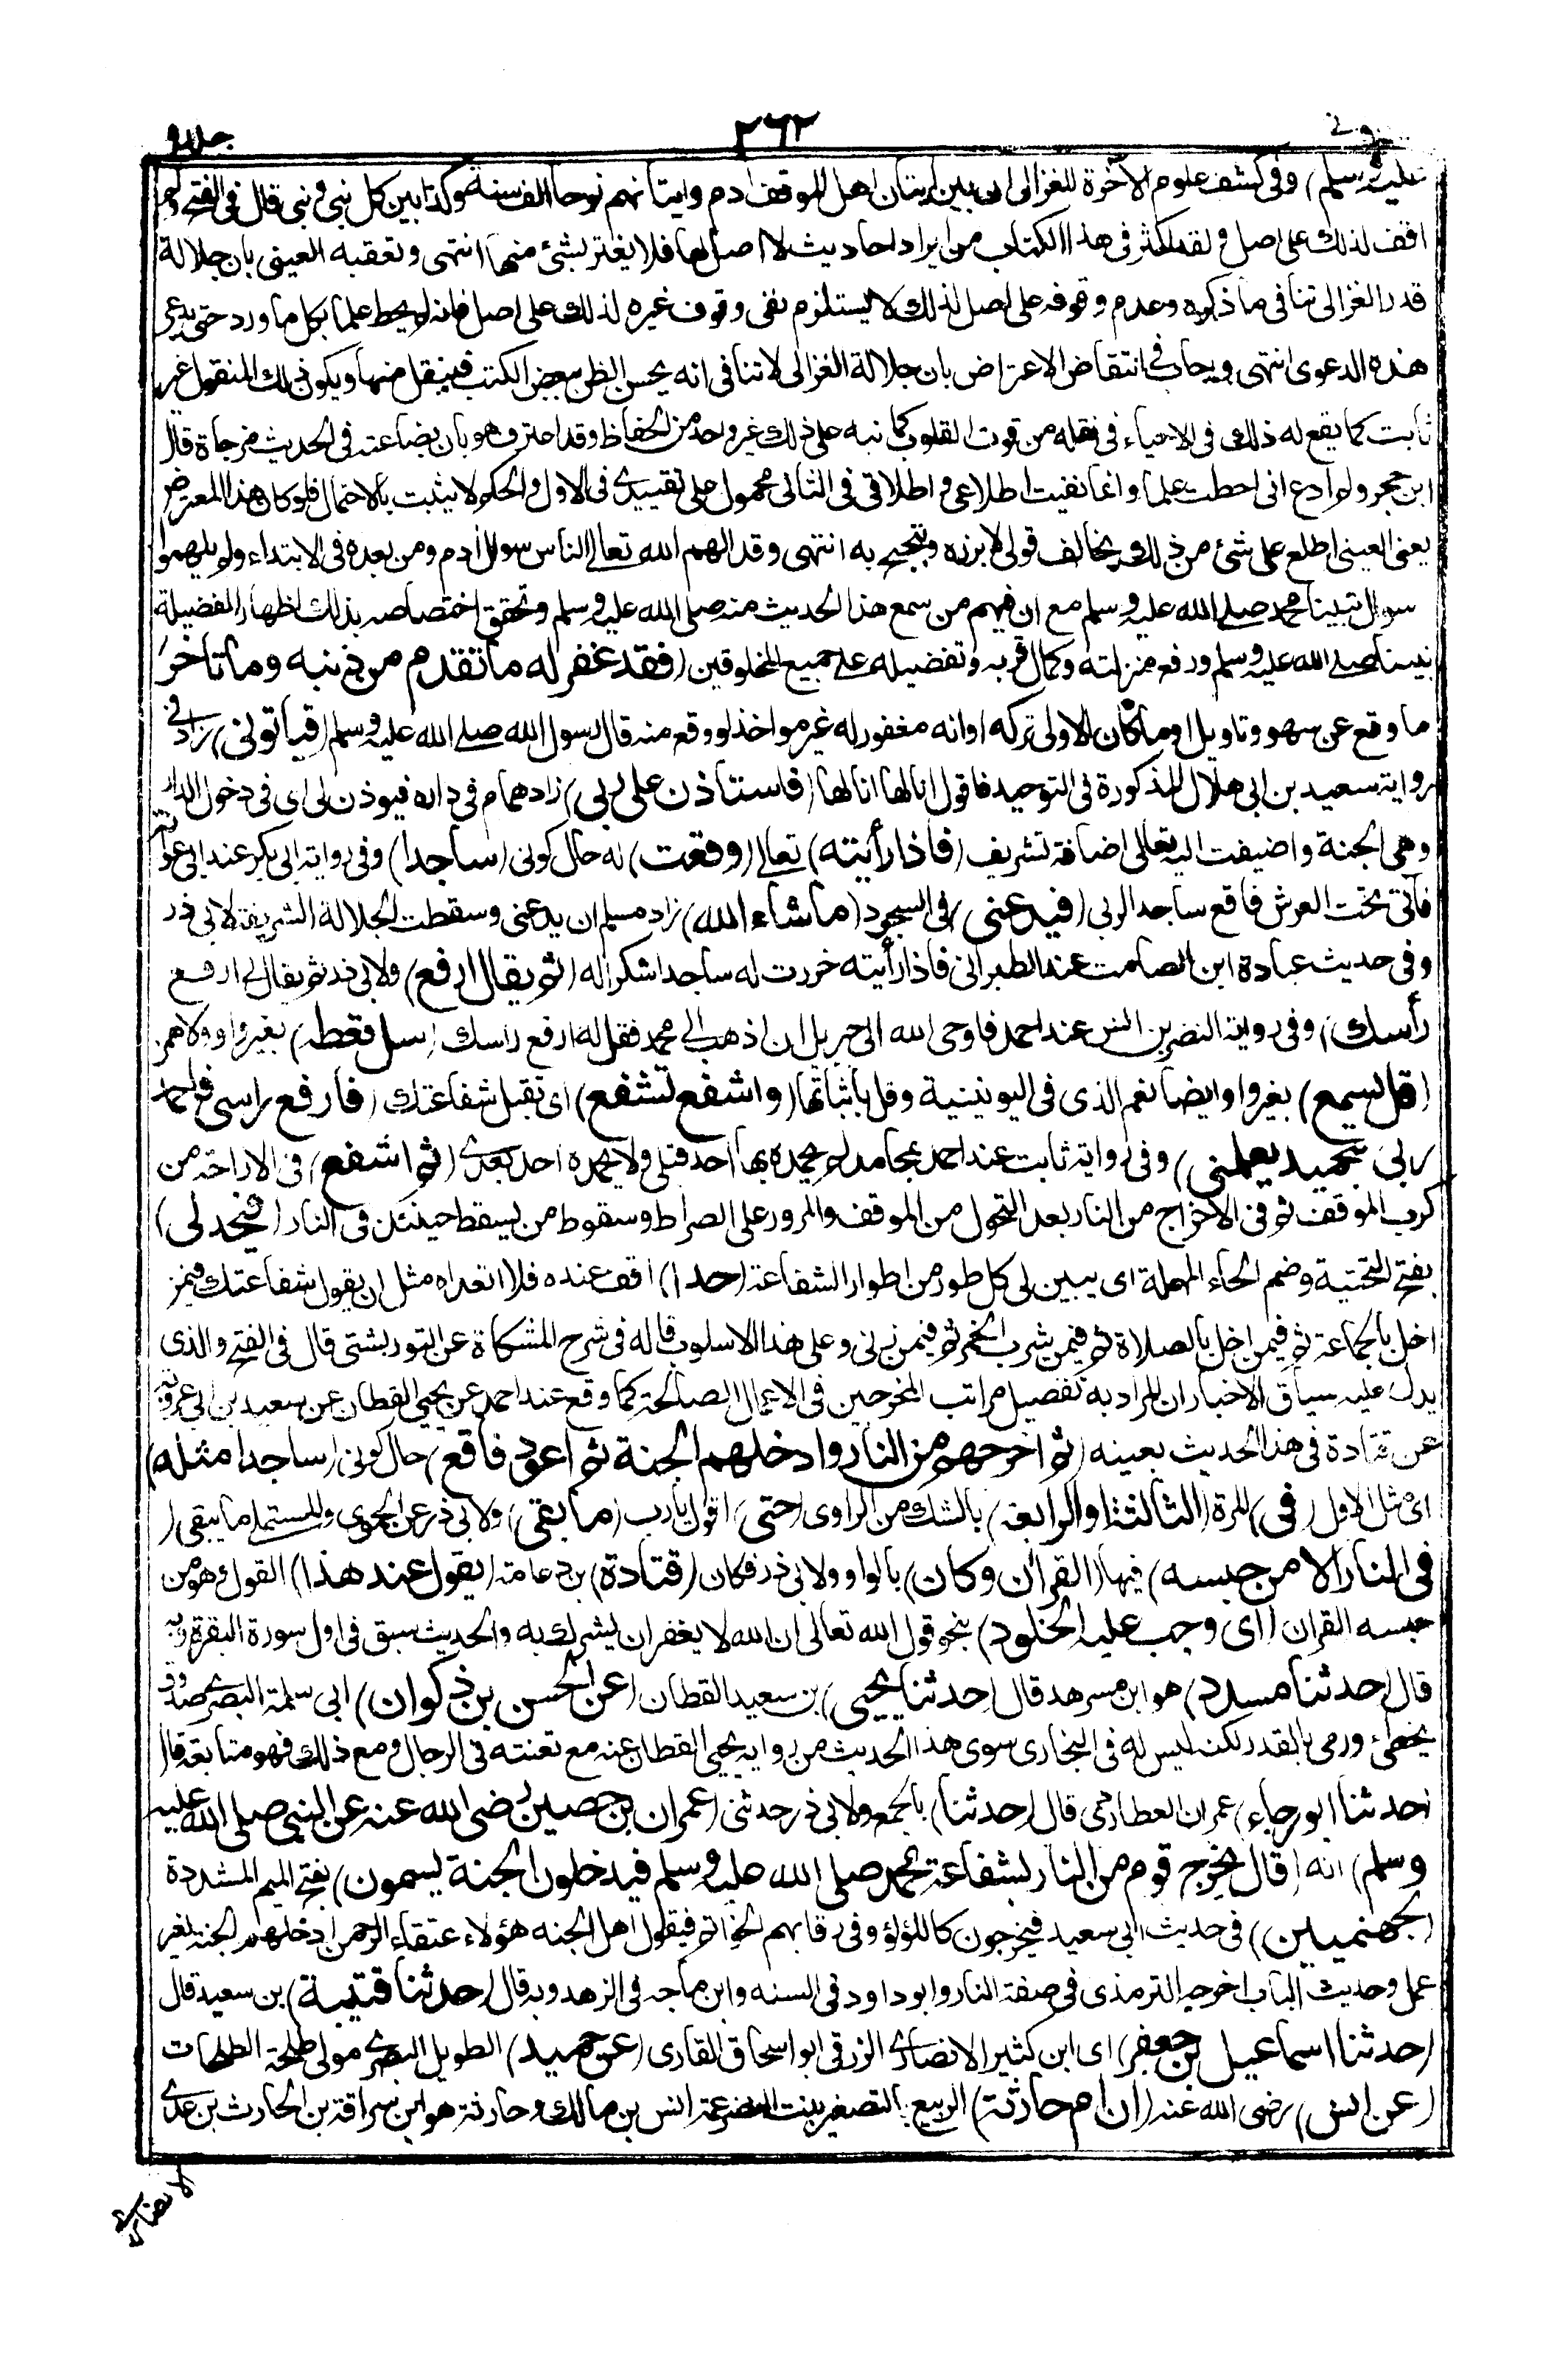 ٢٦٢
عليه وسلم) وفى كشف علوم الآخرة للغزالى ان بين اتيان اهل الموقف ادم واتيانهم نوحا الف سنة وكذا بين كل نبى ونبى قال فى الفتح ولم
اقف لذلك على اصل ولقد اكثر فى هذا الكتاب من ايراد احاديث لا اصل لها فلا يغتر بشئ منها انتهى وتعقبه العينى بان جلالة
قدر الغزالى تنافى ما ذكره وعدم وقوفه على اصل لذلك لا يستلزم نفى وقوف غيره لذلك على اصل فانه لم يحط علما بكل ما ورد حتى يدعى
هذه الدعوى انتهى ويجاب فى انتقاض الاعتراض بان جلالة الغزالى لا تنافى انه يحسن الظن ببعض الكتب فينقل منها ويكون ذلك المنقول غير
ثابت كما يقع له ذلك فى الاحياء فى نقله من قوت القلوب كما نبه على ذلك غير واحد من الحفاظ وقد اعترف هو بان بضاعته فى الحديث مزجاة قال
ابن حجر ولم ادع انى احطت علما وانما نفيت اطلاعى واطلاقى فى الثانى محمول على تقييدى فى الاول والحكم لا يثبت بالاحتمال فلو كان هذا المعترض
يعنى العينى اطلع على شئ من ذلك يخالف قولى لابرزه وتبجح به انتهى وقد الهم الله تعالى الناس سوال ادم ومن بعده فى الابتداء ولم يلهموا
سوال نبينا محمد صلى الله عليه وسلم مع ان فيهم من سمع هذا الحديث منه صلى الله عليه وسلم وتحقق اختصاصه بذلك اظهارا لفضيلة
نبينا صلى الله عليه وسلم ورفع منزلته وكمال قربه وتفضيله على جميع المخلوقين (فقد غفر له ما تقدم من ذنبه وما تأخر
ما وقع عن سهو وتاويل او ما كان الاولى تركه او انه مغفور له غير مواخذ لو وقع منه قال رسول الله صلى الله عليه وسلم (فيأتونى) زاد فى
رواية سعيد بن ابى هلال المذكورة فى التوحيد فاقول انا لها انا لها (فاستأذن على ربى) زاد همام فى داره فيوذن لى اى فى دخول الدار
وهى الجنة واضيفت اليه تعالى اضافة تشريف (فاذا رأيته) تعالى (وقعت) له حال كونى (ساجدا) وفى رواية ابى بكر عند ابى عوانة
فآتى تحت العرش فاقع ساجدا لربى (فيدعنى) فى السجود (ما شاء الله) زاد مسلم ان يدعنى وسقطت الجلالة الشريفة لابى ذر
وفى حديث عبادة ابن الصامت عند الطبرانى فاذا رأيته خررت له ساجدا شكرا له (ثم يقال ارفع) ولابى ذر ثم يقال لى ارفع
رأسك) وفى رواية النضر بن انس عند احمد فاوحى الله الى جبريل ان اذهب الى محمد فقل له ارفع راسك (سل تعطه) بغير واو ولا همز
(قل يسمع) بغير واو ايضا نعم الذى فى اليونينية وقل باثباتها (واشفع تشفع) اى تقبل شفاعتك (فارفع راسى فاحمد
ربى بتحميد يعلمنى) وفى رواية ثابت عند احمد بمحامد لم يحمده بها احد قبلى ولا يحمده احد بعدى (ثم اشفع) فى الاراحة من
كرب الموقف ثم فى الاخراج من النار بعد التحول من الموقف والمرور على الصراط وسقوط من يسقط حينئذ فى النار (فيحد لى)
بفتح التحتية وضم الحاء المهملة اى يبين لى كل طور من اطوار الشفاعة (حدا) اقف عنده فلا اتعداه مثل ان يقول شفاعتك فيمن
اخل بالجماعة ثم فيمن اخل بالصلاة ثم فيمن شرب الخمر ثم فيمن زنى وعلى هذا الاسلوب قاله فى شرح المشكاة عن التوربشتى قال فى الفتح والذى
يدل عليه سياق الاخبار ان المراد به تفصيل مراتب المخرجين فى الاعمال الصالحة كما وقع عند احمد عن يحيى القطان عن سعيد بن ابى عروبة
عن قتادة فى هذا الحديث بعينه (ثم اخرجهم من النار وادخلهم الجنة ثم اعود فاقع) حال كونى (ساجدا مثله)
اى مثل الاول (فى) المرة (الثالثة او الرابعة) بالشك من الراوى (حتى) اقول يا رب (ما بقى) ولابى ذر عن الحموى والمستملى ما يبقى (
فى النار الا من حبسه) فيها (القرآن وكان) بالواو ولابى ذر فكان (قتادة) بن دعامة (يقول عند هذا) القول وهو من
حبسه القران (اى وجب عليه الخلود) بنحو قول الله تعالى ان الله لا يغفر ان يشرك به والحديث سبق فى اول سورة البقرة وبه
قال (حدثنا مسدد) هو ابن مسرهد قال (حدثنا يحيى) بن سعيد القطان (عن الحسن بن ذكوان) ابى سلمة البصرى صدوق
يخطىء ورمى بالقدر لكن ليس له فى البخارى سوى هذا الحديث من رواية يحيى القطان عنه مع تعنته فى الرجال ومع ذلك فهو متابعة قال
(حدثنا ابو رجاء) عمران العطاردى قال (حدثنا) بالجمع ولابى ذر حدثنى (عمران بن حصين رضى الله عنه عن النبى صلى الله عليه
وسلم) انه (قال يخرج قوم من النار بشفاعة محمد صلى الله عليه وسلم فيدخلون الجنة يسمون) بفتح الميم المشددة
(الجهنميين) فى حديث ابى سعيد فيخرجون كاللؤلؤ وفى رقابهم الخواتم فيقول اهل الجنه هؤلاء عتقاء الرحمن ادخلهم الجنة بغير
عمل وحديث الباب اخرجه الترمذى فى صفة النار وابو داود فى السنه وابن ماجه فى الزهد وبه قال (حدثنا قتيبة) بن سعيد قال
(حدثنا اسماعيل بن جعفر) اى ابن كثير الانصارى الزرقى ابو اسحاق القارى (عن حميد) الطويل البصرى مولى طلحة الطلحات
(عن انس) رضى الله عنه (ان ام حارثة) الربيع بالتصغير بنت النضر عمة انس بن مالك وحارثة هو ابن سراقة بن الحارث بن عدى